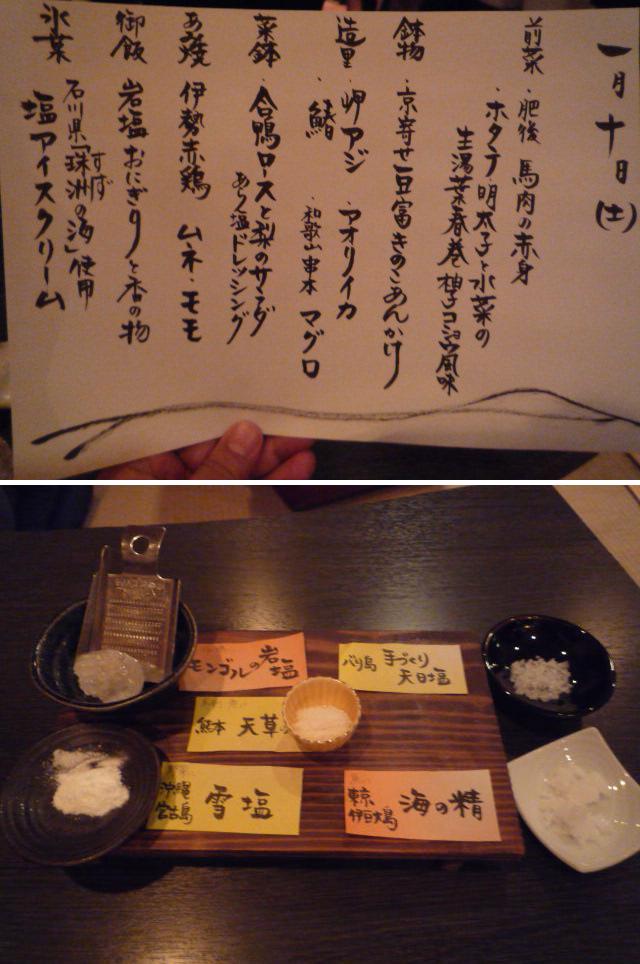 一月十日(土)
前菜・肥後 馬肉の赤身
・ホタテ明太子と水菜の
生湯葉春巻 柚子コショウ風味
鉢物・京寄せ豆富きのこあんかけ
造里・岬アジ ・アオリイカ
・鰆 ・和歌山串本 マグロ
菜鉢・合鴨ロースと梨のサラダ
あら塩ドレッシング
伊勢赤鶏 ムネ・モモ
御飯 岩塩おにぎりと香の物
氷菓 石川県「珠洲の海」使用
すず
塩アイスクリーム
モンゴルの岩塩
バリ島 手づくり
天日塩
熊本 天草の
沖縄
宮古島 雪塩
東京
伊豆大島 海の精